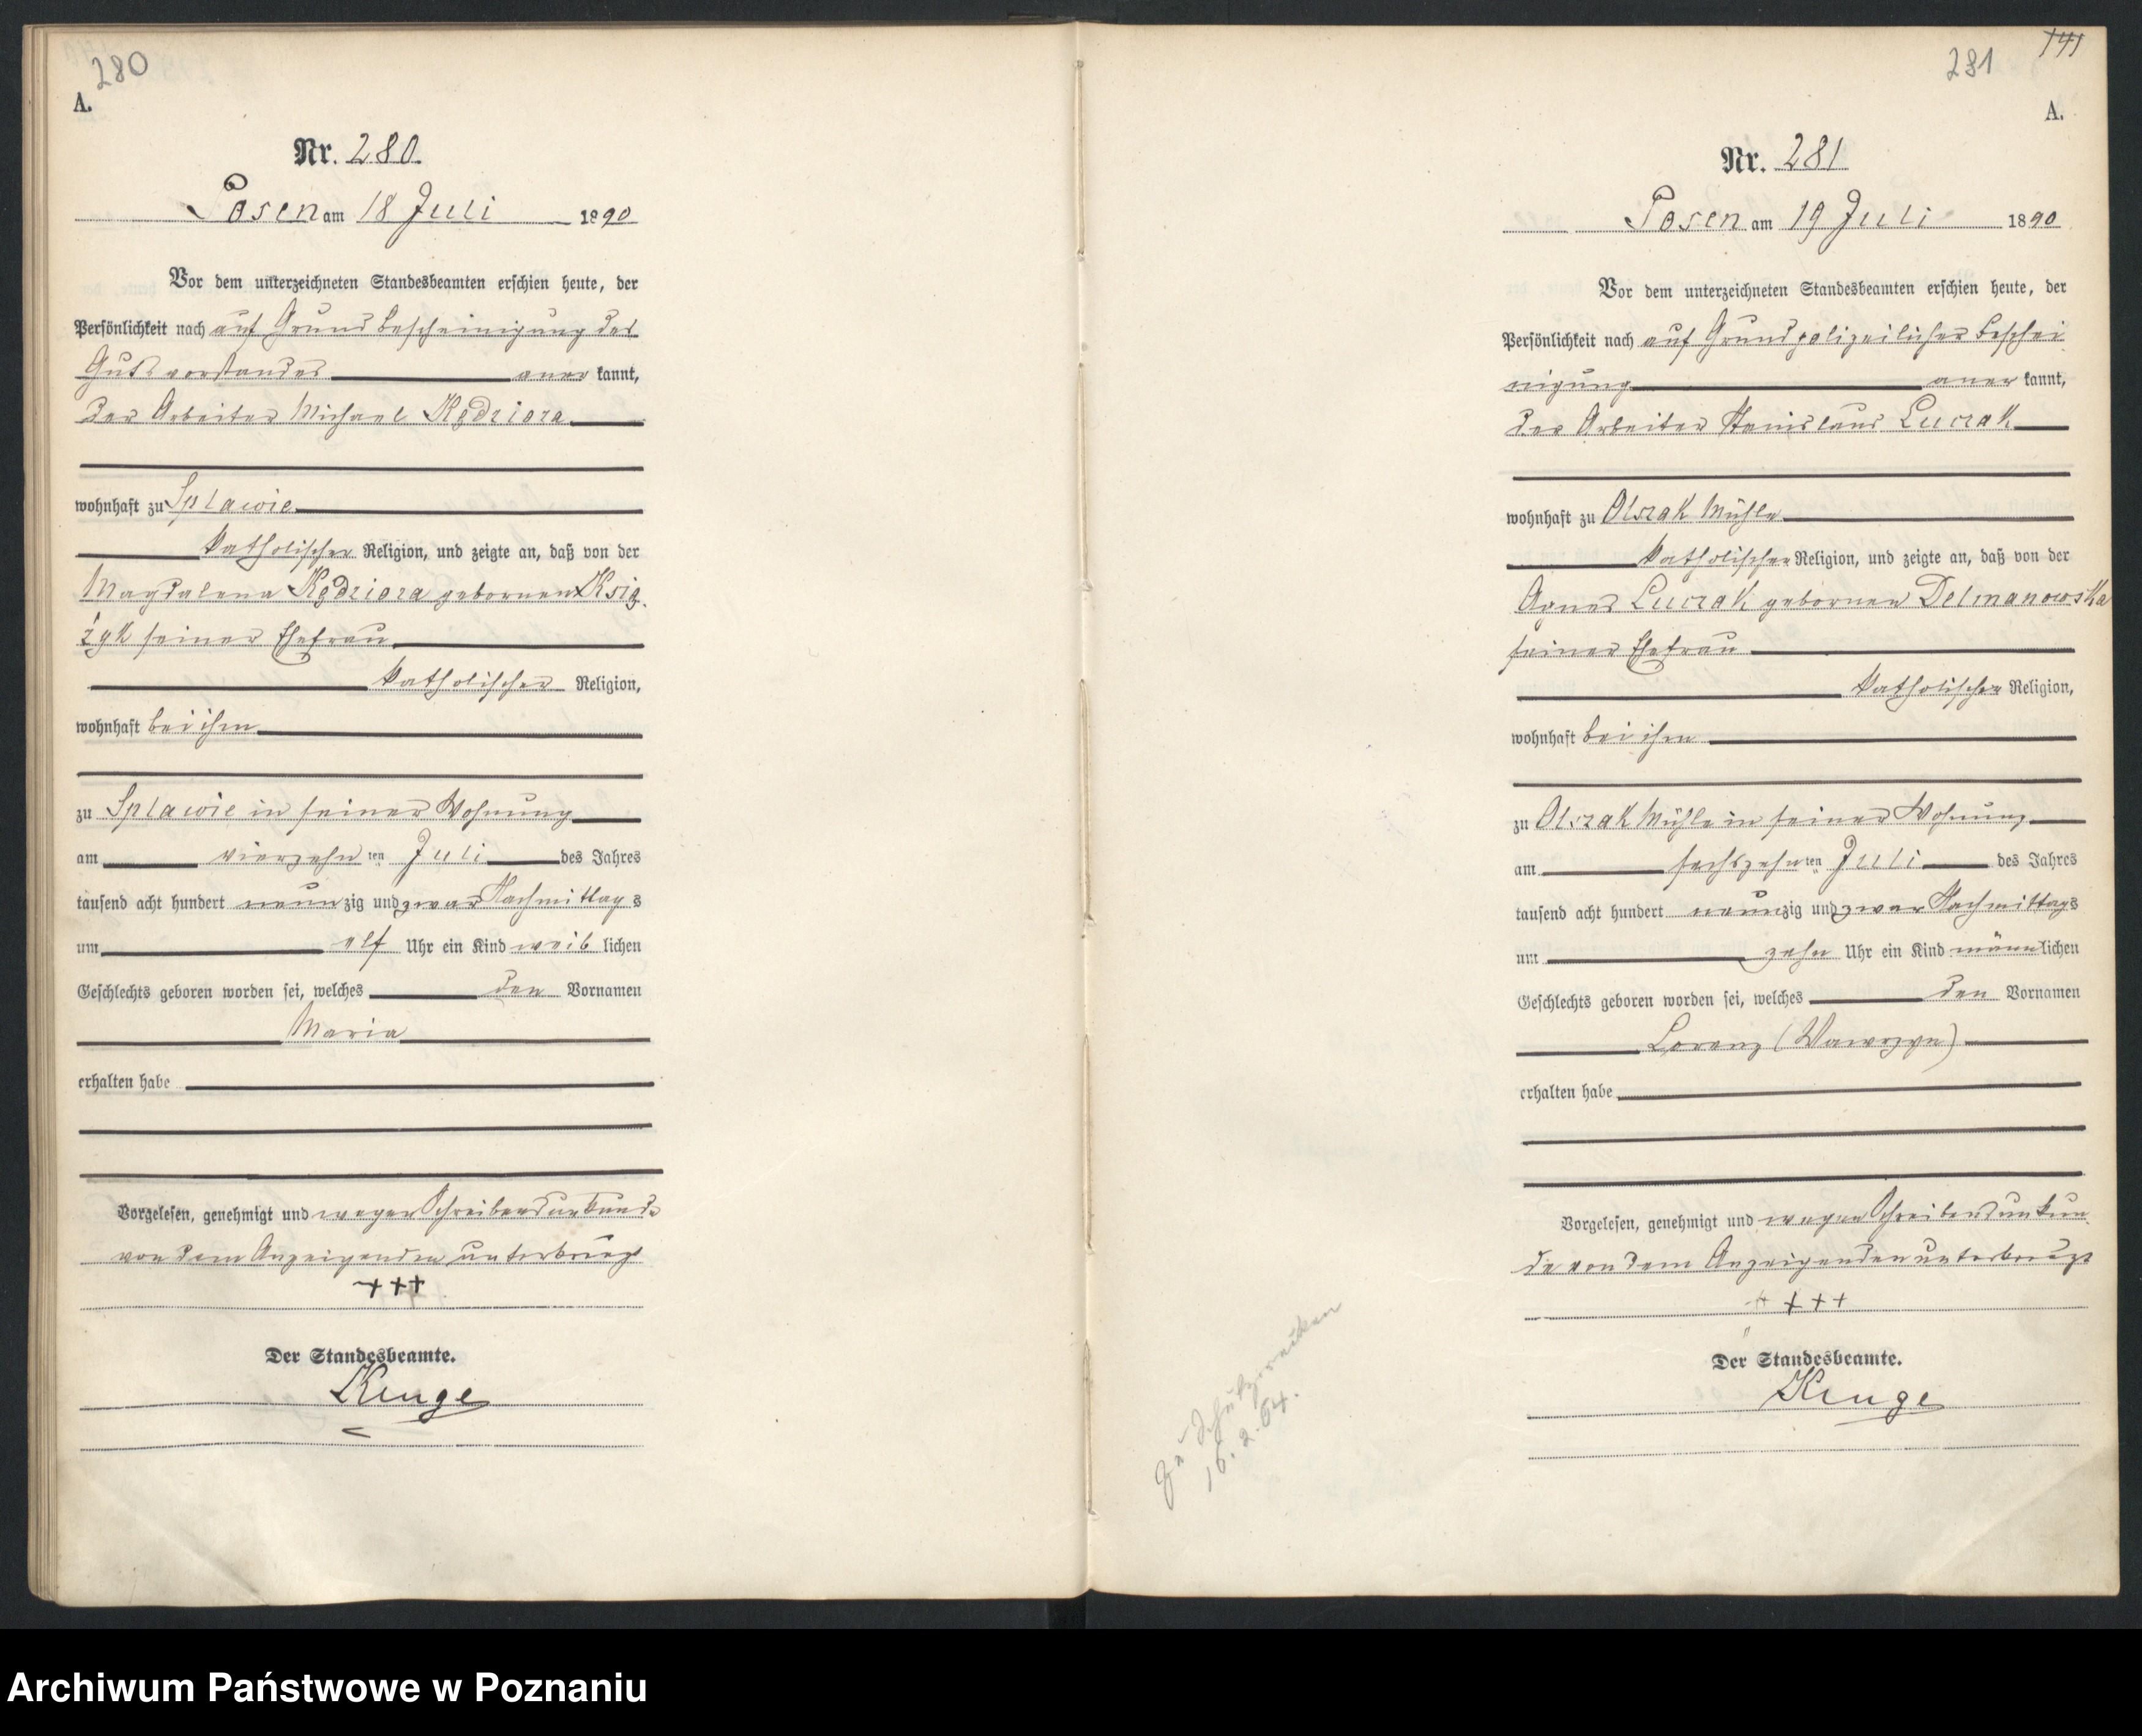 280
A.
Nr. 280.
Posen am 18 Juli 1890
Vor dem unterzeichneten Standesbeamten erschien heute, der
Persönlichkeit nach auf Grund Bescheinigung des
Gutsvorstandes aner kannt,
der Arbeiter Michael Kędziora
wohnhaft zu Splawie
katholischer Religion, und zeigte an, daß von der
Magdalena Kędziora geborenen Książ-
żyk seiner Ehefrau
katholischer Religion,
wohnhaft bei ihm
zu Splawie in seiner Wohnung
am vierzehn ten Juli des Jahres
tausend acht hundert neun zig und zwar Nachmittag s
um elf Uhr ein Kind weib lichen
Geschlechts geboren worden sei, welches den Vornamen
Maria
erhalten habe
Vorgelesen, genehmigt und wegen Schreibensunkunde
von dem Anzeigenden unterkreuzt
+++
Der Standesbeamte.
Kruge
281
141
A.
Nr. 281
Posen am 19 Juli 1890
Vor dem unterzeichneten Standesbeamten erschien heute, der
Persönlichkeit nach auf Grund polizeilicher Beschei
nigung aner kannt,
der Arbeiter Stanislaus Luczak
wohnhaft zu Olszak Mühle
katholischer Religion, und zeigte an, daß von der
Agnes Luczak geborenen Delmanowska
seiner Ehefrau
katholischer Religion,
wohnhaft bei ihm
zu Olszak Mühle in seiner Wohnung
am sechszehn ten Juli des Jahres
tausend acht hundert neunzig und zwar Nachmittags
um zehn Uhr ein Kind männlichen
Geschlechts geboren worden sei, welches den Vornamen
Lorenz (Wawrzyn)
erhalten habe
Vorgelesen, genehmigt und wegen Schreibensunkun-
de von dem Anzeigenden unterkreuzt
+ + + +
Der Standesbeamte.
Kruge
16.2.64.
Archiwum Państwowe w Poznaniu